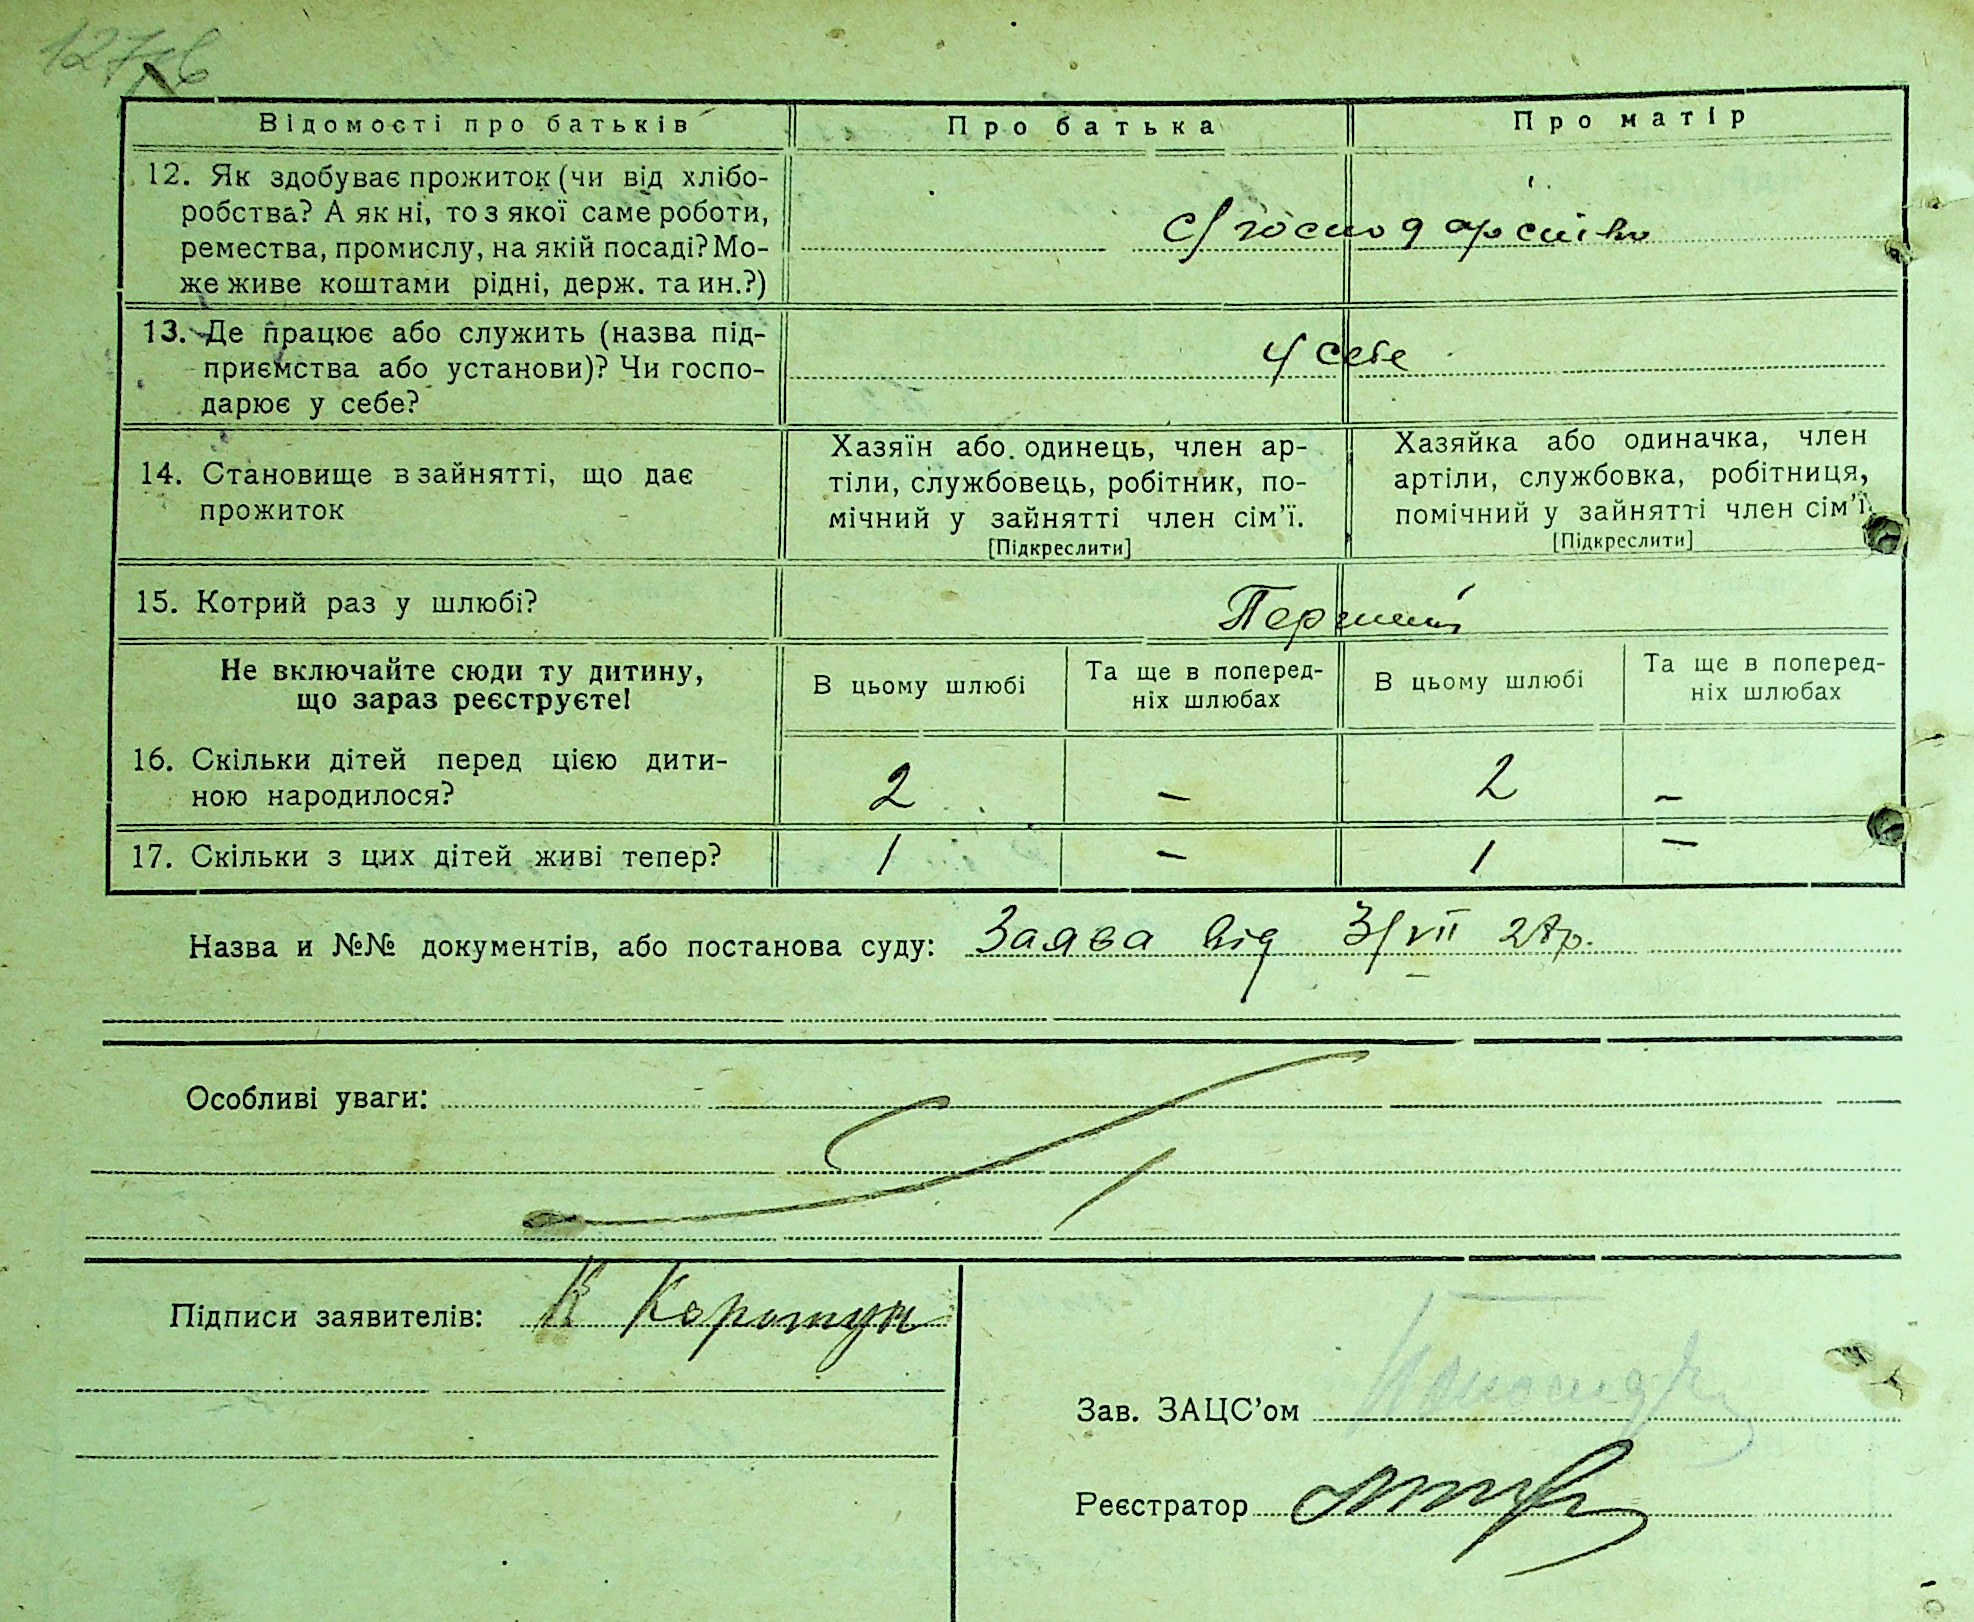 Відомості про батьків
Про батька
Про матір
12. Як здобуває прожиток (чи від хлібо-
робства? А як ні, то з якої саме роботи,
ремества, промислу, на якій посаді? Мо-
же живе коштами рідні, держ. та ин.?)
с/господарство
13. Де працює або служить (назва під-
приємства або установи)? Чи госпо-
дарює у себе?
у себе
14. Становище в зайнятті, що дає
прожиток
Хазяїн або одинець, член ар-
тіли, службовець, робітник, по-
мічний у зайнятті член сім'ї.
[Підкреслити]
Хазяйка або одиначка, член
артіли, службовка, робітниця,
помічний у зайнятті член сім'ї.
[Підкреслити]
15. Котрий раз у шлюбі?
Перший
Не включайте сюди ту дитину,
що зараз реєструєте!
В цьому шлюбі
Та ще в поперед-
ніх шлюбах
В цьому шлюбі
Та ще в поперед-
ніх шлюбах
16. Скільки дітей перед цією дити-
ною народилося?
2 – 2 –
17. Скільки з цих дітей живі тепер?
1 – 1 –
Назва и №№ документів, або постанова суду: Заява від 3/VII р.
Особливі уваги:
Підписи заявителів: К Коротун
Зав. ЗАЦС'ом
Реєстратор